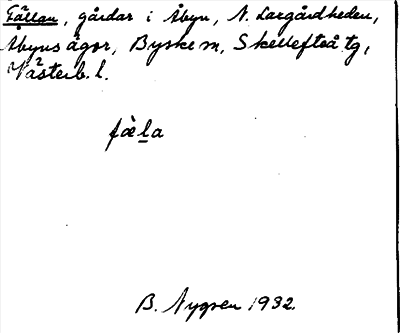 Fällan, gårdar i Åbyn, N. Largårdheden,
Åbyns ägor, Byske sn, Skellefteå tg,
Västerb. l.
fä̀l̲a
B. Nygren 1932.